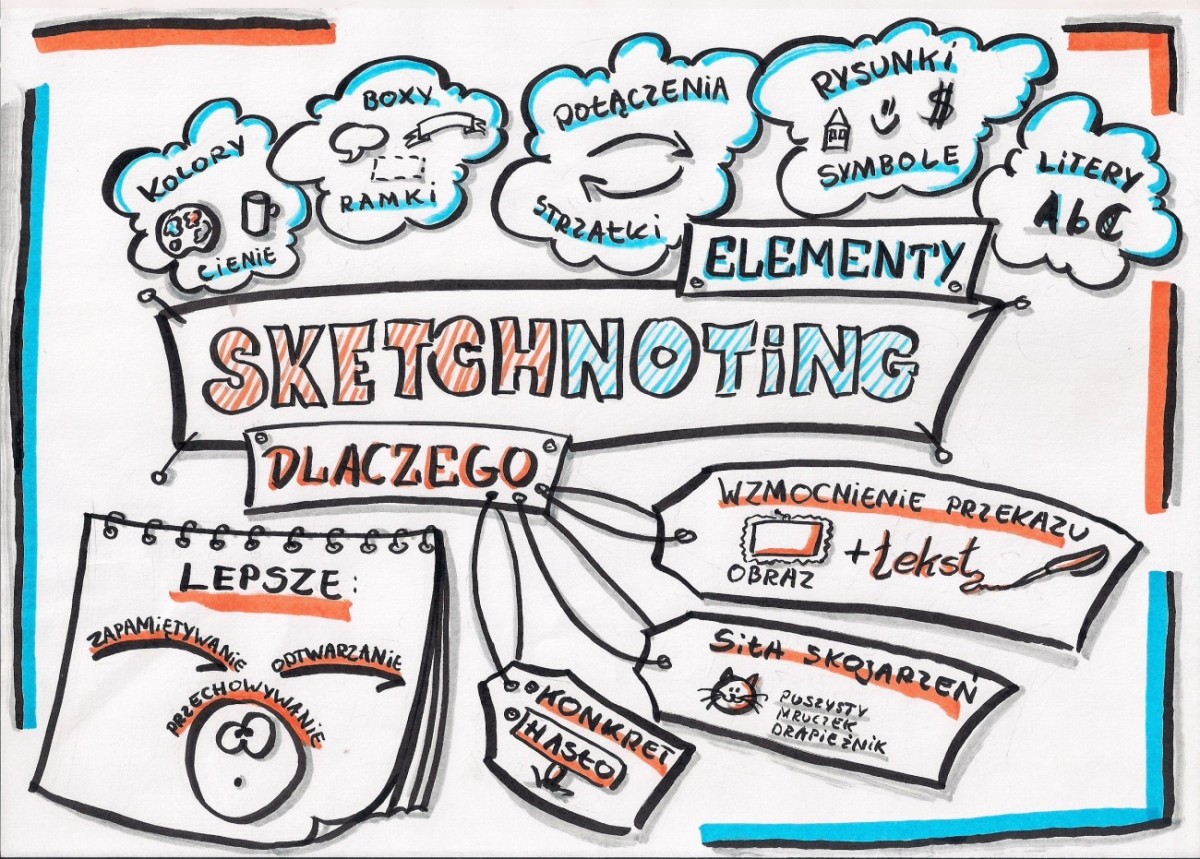 KOLORY
CIENIE
BOXY
RAMKI
POŁĄCZENIA
STRZAŁKI
RYSUNKI
$
SYMBOLE
LITERY
AbC
ELEMENTY
SKETCHNOTING
DLACZEGO
LEPSZE:
ZAPAMIĘTYWANIE
ODTWARZANIE
PRZECHOWYWANIE
WZMOCNIENIE PRZEKAZU
OBRAZ
+ tekst
SIŁA SKOJARZEŃ
PUSZYSTY
MRUCZEK
DRAPIEŻNIK
KONKRET
HASŁO